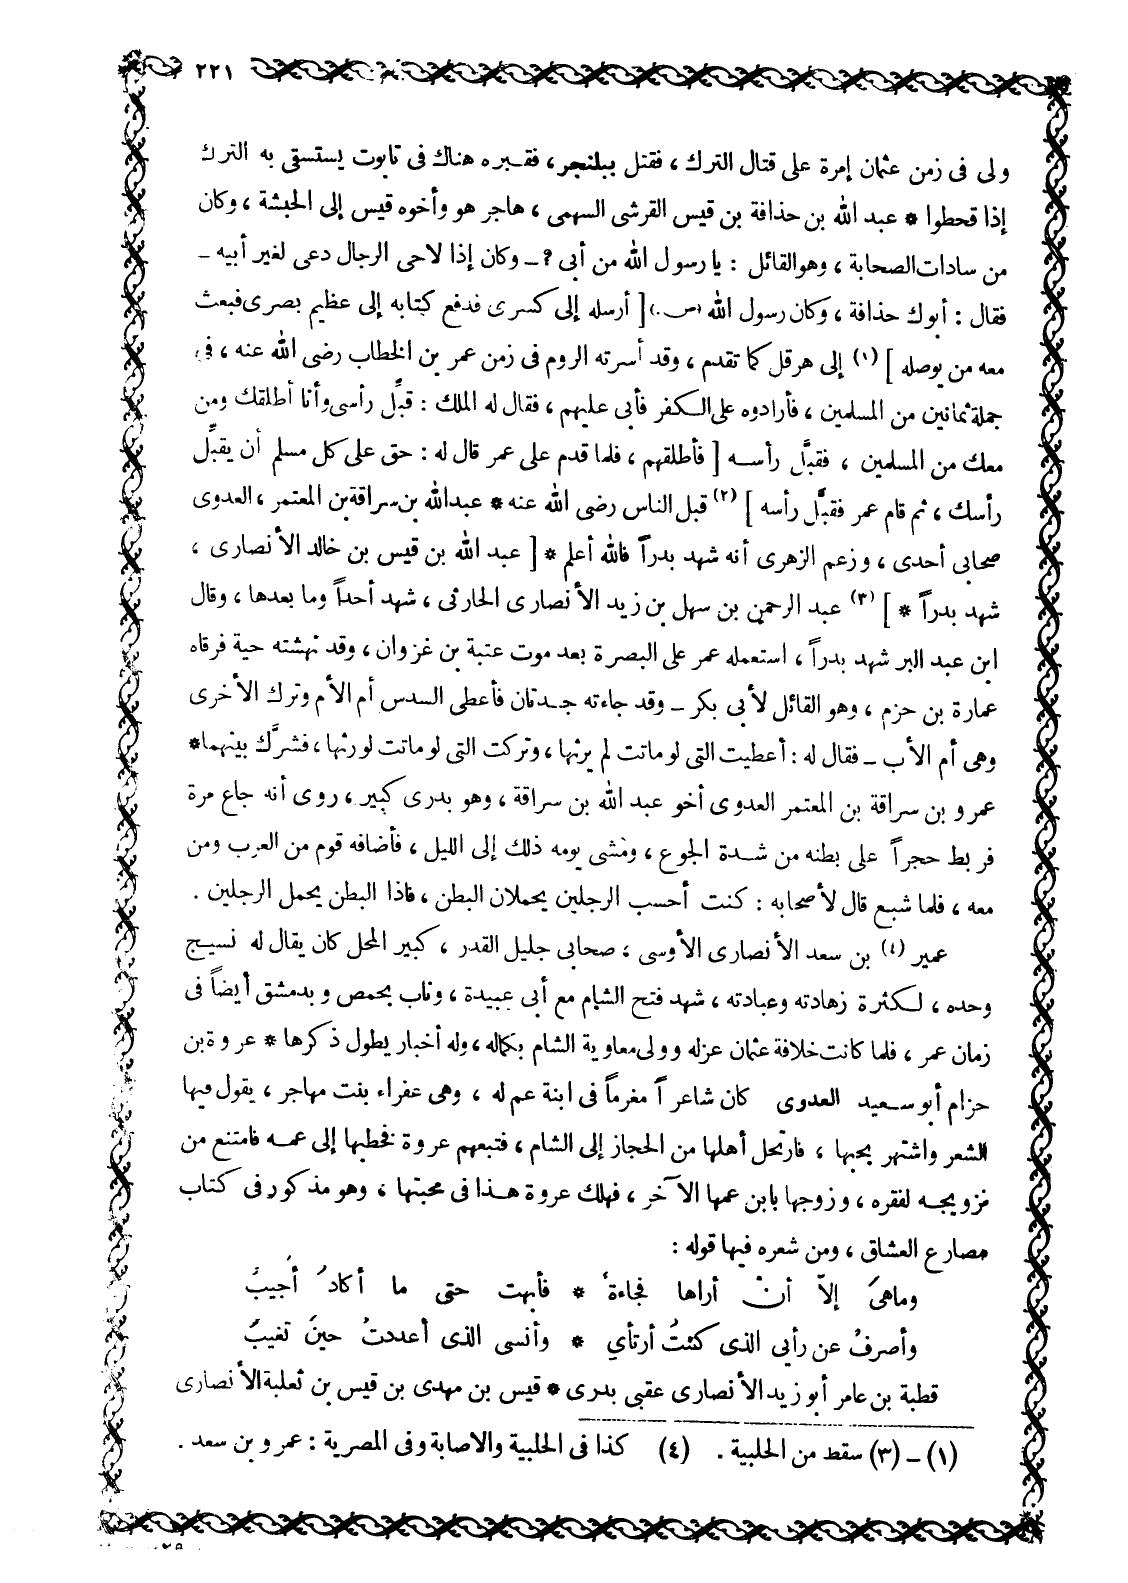 ٢٢١
ولى فى زمن عثمان إمرة على قتال الترك ، فقتل ببلنجر ، فقبره هناك فى تابوت يستسقى به الترك
إذا قحطوا * عبد الله بن حذافة بن قيس القرشى السهمى ، هاجر هو وأخوه قيس إلى الحبشة ، وكان
من سادات الصحابة ، وهو القائل : يا رسول الله من أبى ? ــ وكان إذا لاحى الرجال دعى لغير أبيه ــ
فقال : أبوك حذافة ، وكان رسول الله (ص.) [ أرسله إلى كسرى فدفع كتابه إلى عظيم بصرى فبعث
معه من يوصله ] (١) إلى هرقل كما تقدم ، وقد أسرته الروم فى زمن عمر بن الخطاب رضى الله عنه ، فى
جملة ثمانين من المسلمين ، فأرادوه على الكفر فأبى عليهم ، فقال له الملك : قبِّل رأسى وأنا أطلقك ومن
معك من المسلمين ، فقبَّل رأسه [ فأطلقهم ، فلما قدم على عمر قال له : حق على كل مسلم أن يقبِّل
رأسك ، ثم قام عمر فقبَّل رأسه ] (٢) قبل الناس رضى الله عنه * عبدالله بن سراقة بن المعتمر ، العدوى
صحابى أحدى ، وزعم الزهرى أنه شهد بدراً فالله أعلم * [ عبد الله بن قيس بن خالد الأنصارى ،
شهد بدراً * ] (٣) عبد الرحمن بن سهل بن زيد الأنصارى الحارثى ، شهد أحداً وما بعدها ، وقال
ابن عبد البر شهد بدراً ، استعمله عمر على البصرة بعد موت عتبة بن غزوان ، وقد نهشته حية فرقاه
عمارة بن حزم ، وهو القائل لأبى بكر ــ وقد جاءته جدتان فأعطى السدس أم الأم وترك الأخرى
وهى أم الأب ــ فقال له : أعطيت التى لو ماتت لم يرثها ، وتركت التى لو ماتت لورثها ، فشرَّك بينهما *
عمرو بن سراقة بن المعتمر العدوى أخو عبد الله بن سراقة ، وهو بدرى كبير ، روى أنه جاع مرة
فربط حجراً على بطنه من شدة الجوع ، ومشى يومه ذلك إلى الليل ، فأضافه قوم من العرب ومن
معه ، فلما شبع قال لأصحابه : كنت أحسب الرجلين يحملان البطن ، فاذا البطن يحمل الرجلين .
عمير (٤) بن سعد الأنصارى الأوسى ، صحابى جليل القدر ، كبير المحل كان يقال له نسيج
وحده ، لكثرة زهادته وعبادته ، شهد فتح الشام مع أبى عبيدة ، وناب بحمص وبدمشق أيضاً فى
زمان عمر ، فلما كانت خلافة عثمان عزله وولى معاوية الشام بكماله ، وله أخبار يطول ذكرها * عروة بن
حزام أبو سعيد العدوى كان شاعراً مغرماً فى ابنة عم له ، وهى عفراء بنت مهاجر ، يقول فيها
الشعر واشتهر بحبها ، فارتحل أهلها من الحجاز إلى الشام ، فتبعهم عروة فخطبها إلى عمه فامتنع من
تزويجه لفقره ، وزوجها بابن عمها الآخر ، فهلك عروة هذا فى محبتها ، وهو مذكور فى كتاب
مصارع العشاق ، ومن شعره فيها قوله :
وماهىَ إلاّ أنْ أراها فجاءة * فأبهت حتى ما أكادُ أجيبُ
وأصرفُ عن رأيى الذى كنتُ أرتأي * وأنسى الذى أعددتُ حينَ تغيبُ
قطبة بن عامر أبو زيد الأنصارى عقبى بدرى * قيس بن مهدى بن قيس بن ثعلبة الأنصارى
(١) ــ (٣) سقط من الحلبية . (٤) كذا فى الحلبية والاصابة وفى المصرية : عمرو بن سعد .